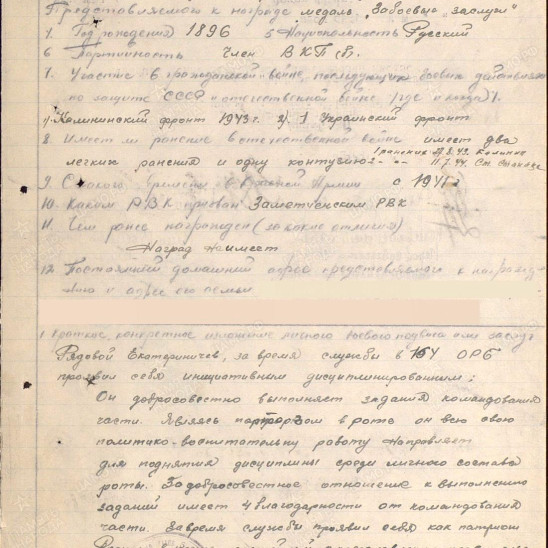 Представляемого к награде медаль „За боевые заслуги"
4. Год рождения 1896 5 Национальность Русский
6 Партийность Член ВКП(б).
7. Участие в гражданской войне, последующих боевых действиях
по защите СССР и отечественной войне (где и когда).
Калининский фронт 1943 г. 1 Украинский фронт
8. Имеет ли ранение в отечественной войне имеет два
легких ранения и одну контузию
9. С какого времени в Красной Армии с 1941
10. Каким РВК призван Заметченским РВК
11. Чем ранее награжден (за какие отличия)
Наград не имеет
12. Постоянный домашний адрес представляемого к награде
и адрес его семьи
1. Краткое, конкретное изложение личного боевого подвига или заслуг
Рядовой Екатериничев, за время службы в 164 ОРБ
проявил себя инициативным дисциплинированным;
Он добросовестно выполняет задания командования
части. Являясь парторгом в роте он всю свою
политико-воспитательну работу направляет
для поднятия дисциплины среди личного состава
роты. За добросовестное отношение к выполнению
заданий имеет 4 благодарности от командования
части. За время службы проявил себя как патриот